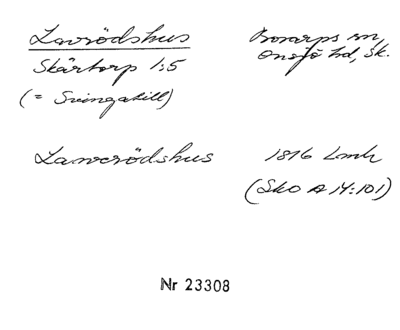 Lavrödshus
Bosarps sn,
Onsjö hd, Sk.
Skärtorp 1:5
(= Svingatill)
Lanvrödshus
1816 Lmh
(Sko A 14:101)
Nr 23308